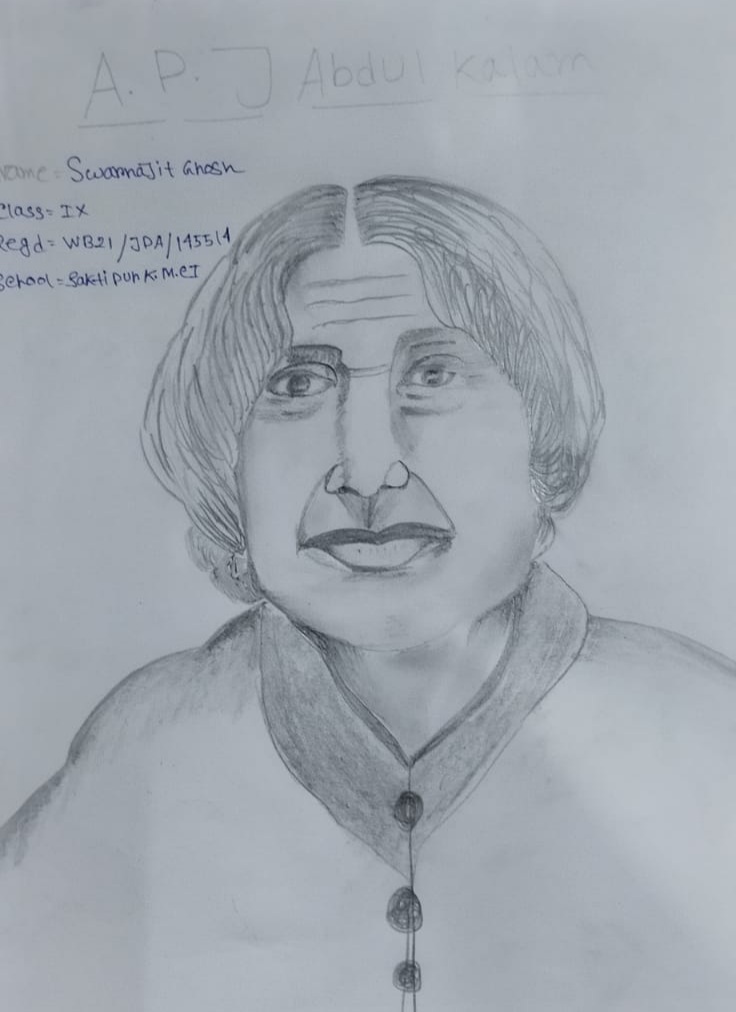 A. P. J Abdul Kalam
Name = Swarnajit Ghosh
Class = IX
Regd = WB21/JDA/145514
School = Saktipur K. M. C I